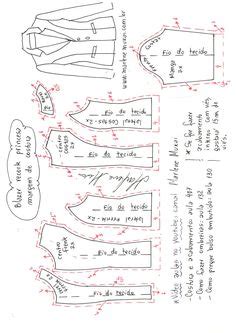 www.marlenemukai.com.br
Blazer recorte princesa
margem de costura
Fio do tecido
Manga
2x
costas
frente
Fio do tecido
centro costas
2x
Fio do tecido
lateral costas 2x
Marlene Mukai
Fio do tecido
lateral frente
2x
Fio do tecido
centro frente
2x
Fio do tecido
2x
* Se for fazer
acabamento
interno com viés,
costurar
viés.
* Vídeo aulas no Youtube: canal Marlene Mukai
- Costura e acabamento: aula 497
- Como fazer embebido: aula 131
- Como pregar bolso embutido: aula 130